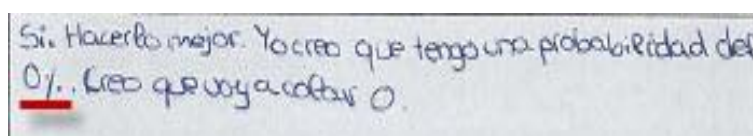 Si. Hacerlo mejor. Yo creo que tengo una probabilidad del
0%. Creo que voy a coltar 0.